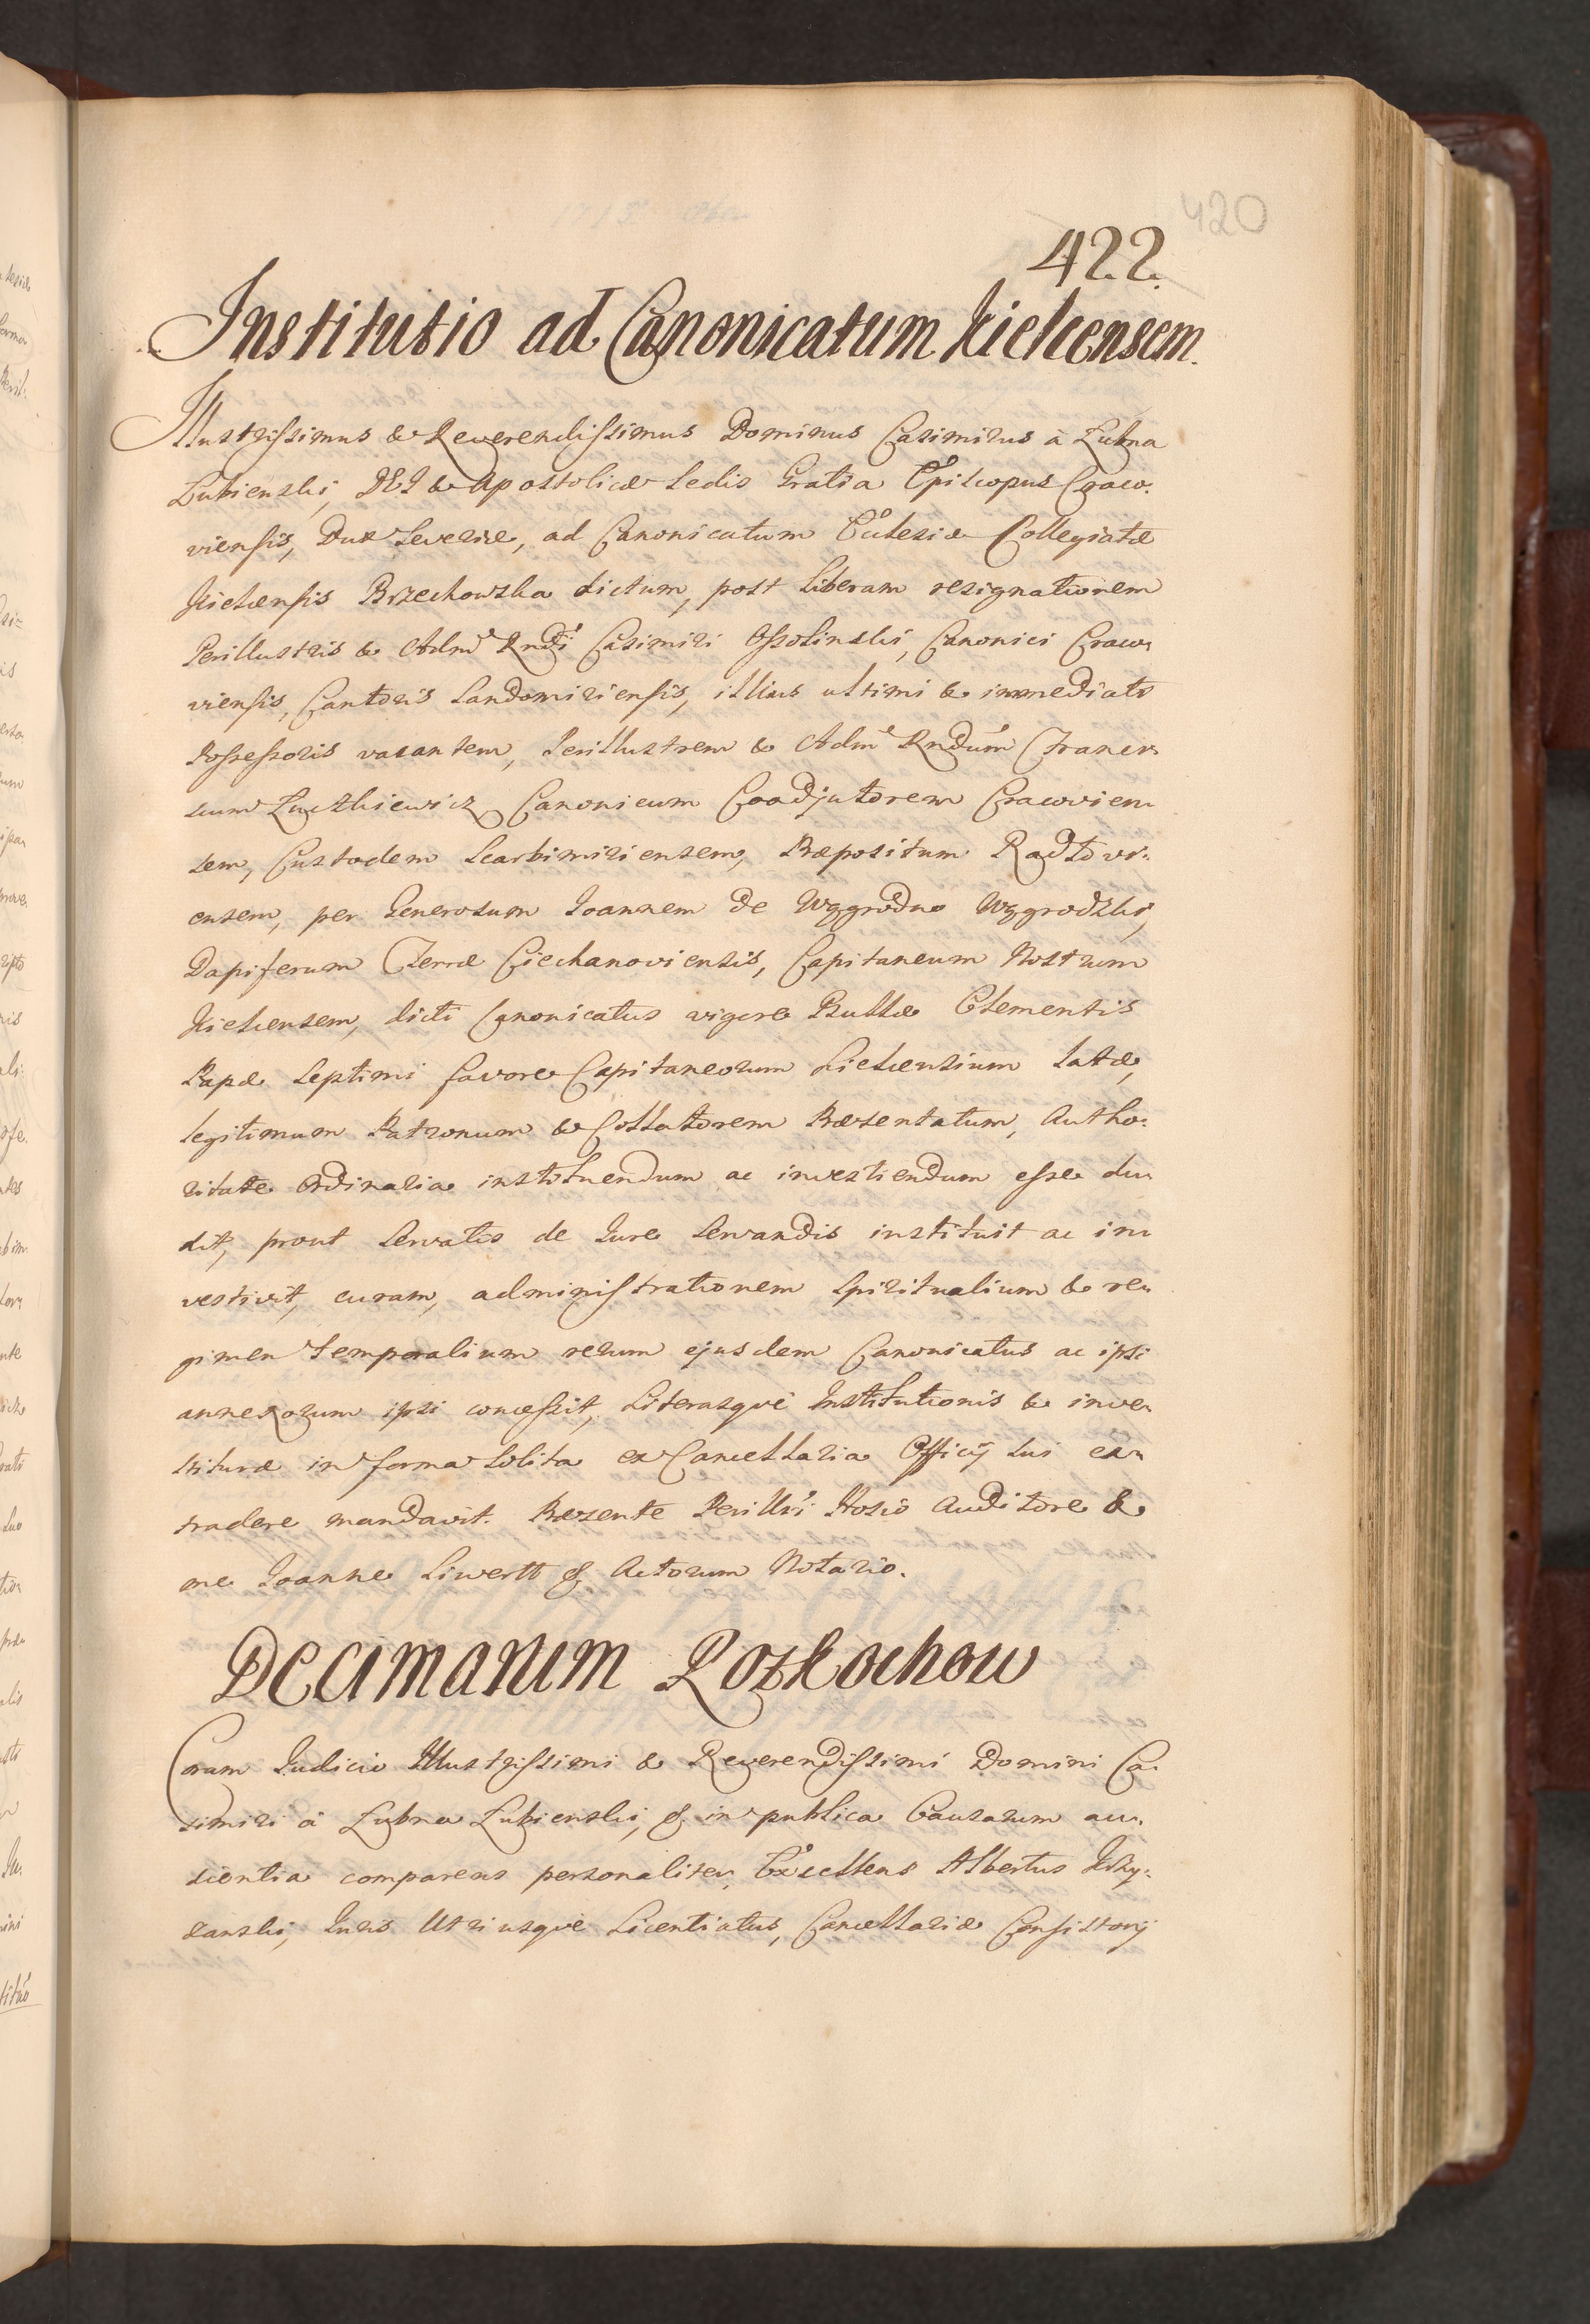 420
422.
Institutio ad Canonicatum Kielcensem.
Illustrissimus & Reverendissimus Dominus Casimirus à Lubna
Lubienski, DEI & Apostolicæ Sedis Gratia Episcopus Craco:
viensis, Dux Severiæ, ad Canonicatum Ecclesiæ Collegiatæ
Kielcensis Brzechowska dictum, post liberam resignationem
Perillustris & Adm Rndi Casimiri Ossolinski, Canonici Craco:
viensis, Cantoris Sandomiriensis, illius ultimi & immediato
Possessoris vacantem, Perillustrem & Adm Rndum Francis:
cum Luczkiewicz Canonicum Coadjutorem Cracovien:
sem, Custodem Scarbimiriensem, Præpositum Radlovi:
ensem, per Generosum Joannem de Wygrodno Wygrodzki,
Dapiferum Terræ Ciechanoviensis, Capitaneum Nostrum
Kielcensem, dicti Canonicatus vigore Bullæ Clementis
Papæ Septimi favore Capitaneorum Kielcensium latæ,
legitimum Patronum & Collatorem Præsentatum, Autho:
ritate Ordinaria instituendum ac investiendum esse du:
xit, prout servatis de Jure servandis instituit ac in:
vestivit, curam, administrationem Spiritualium & re:
gimen temporalium rerum ejusdem Canonicatus ac ipsi
annexorum ipsi concessit, Literasque Institutionis & inve:
stituræ in forma solita ex Cancellaria Officij sui ex:
tradere mandavit. Præsente Perillri Hosio Auditore &
me Joanne Liwertt & Actorum Notario.
Decimarum Rozkochow
Coram Judicio Illustrissimi & Reverendissimi Domini Ca:
simiri à Lubna Lubienski, & in publica Causarum au:
dientia comparens personaliter, Excellens Albertus
Juris Utriusque Licentiatus, Cancellariæ Consistorij